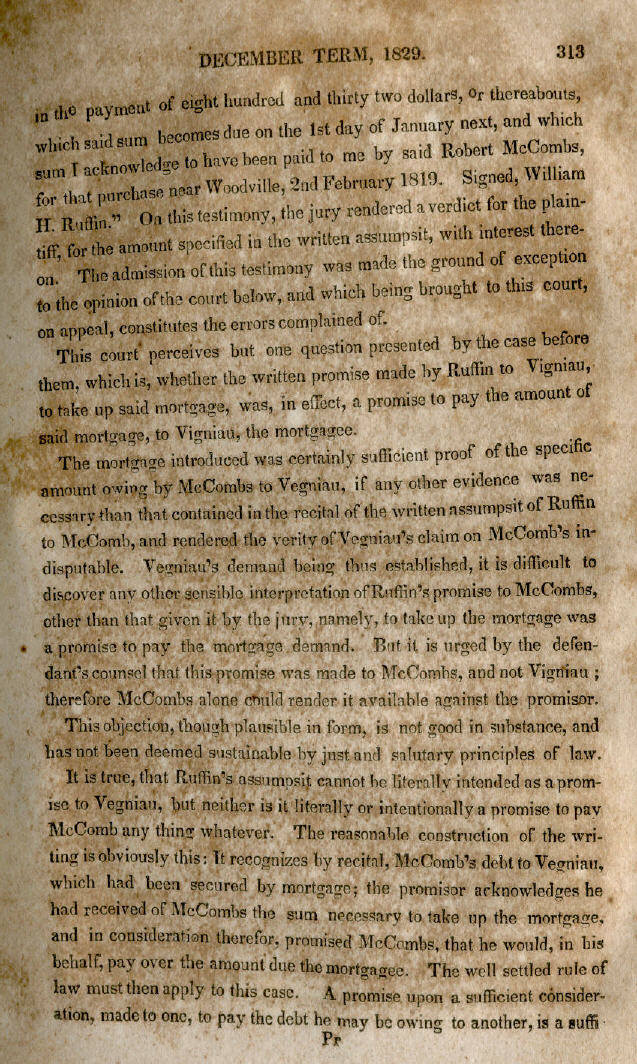 DECEMBER TERM, 1829. 313
in the payment of eight hundred and thirty two dollars, or thereabouts,
which said sum becomes due on the 1st day of January next, and which
sum I acknowledge to have been paid to me by said Robert McCombs,
for that purchase near Woodville, 2nd February 1819. Signed, William
H. Ruffin." On this testimony, the jury rendered a verdict for the plain-
tiff, for the amount specified in the written assumpsit, with interest there-
on. The admission of this testimony was made the ground of exception
to the opinion of the court below, and which being brought to this court,
on appeal, constitutes the errors complained of.
This court perceives but one question presented by the case before
them, which is, whether the written promise made by Ruffin to Vigniau,
to take up said mortgage, was, in effect, a promise to pay the amount of
said mortgage, to Vigniau, the mortgagee.
The mortgage introduced was certainly sufficient proof of the specific
amount owing by McCombs to Vegniau, if any other evidence was ne-
cessary than that contained in the recital of the written assumpsit of Ruffin
to McComb, and rendered the verity of Vegniau's claim on McComb's in-
disputable. Vegniau's demand being thus established, it is difficult to
discover any other sensible interpretation of Ruffin's promise to McCombs,
other than that given it by the jury, namely, to take up the mortgage was
a promise to pay the mortgage demand. But it is urged by the defen-
dant's counsel that this promise was made to McCombs, and not Vigniau ;
therefore McCombs alone could render it available against the promisor.
This objection, though plausible in form, is not good in substance, and
has not been deemed sustainable by just and salutary principles of law.
It is true, that Ruffin's assumpsit cannot be literally intended as a prom-
ise to Vegniau, but neither is it literally or intentionally a promise to pay
McComb any thing whatever. The reasonable construction of the wri-
ting is obviously this: It recognizes by recital, McComb's debt to Vegniau,
which had been secured by mortgage; the promisor acknowledges he
had received of McCombs the sum necessary to take up the mortgage,
and in consideration therefor, promised McCombs, that he would, in his
behalf, pay over the amount due the mortgagee. The well settled rule of
law must then apply to this case. A promise upon a sufficient consider-
ation, made to one, to pay the debt he may be owing to another, is a suffi-
Pr